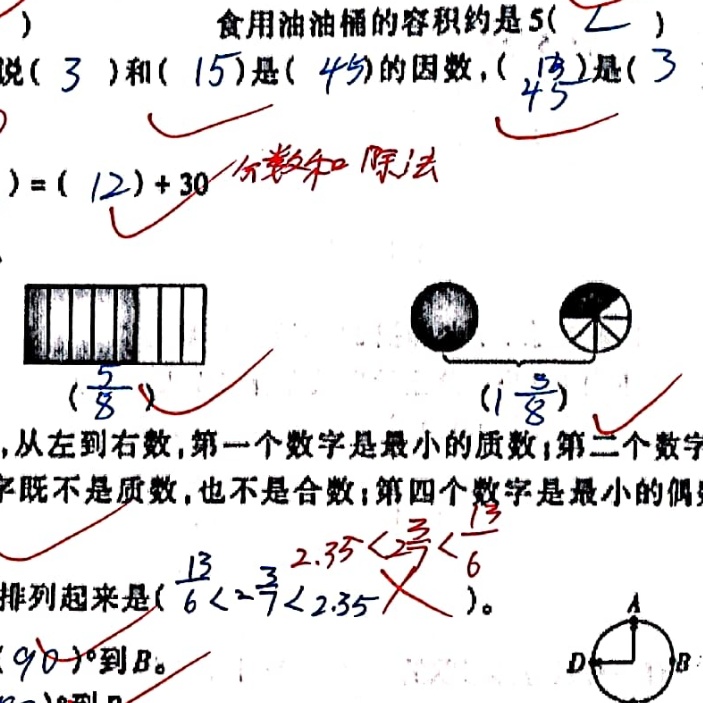 ) 食用油油桶的容积约是5( L )
说( 3 )和( 15 )是( 45 )的因数,( 45 )是( 3
) = ( 12 ) ÷ 30 分数和除法
( 5/8 ) ( 1 3/8 )
,从左到右数,第一个数字是最小的质数;第二个数字
字既不是质数,也不是合数;第四个数字是最小的偶数
2.35 < 2 3/7 < 13/6
排列起来是( 13/6 < 2 3/7 < 2.35 )。
A
( 90 )°到B。
D B